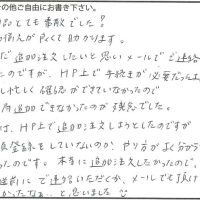 の他ご自由にお書き下さい。
品とても素敵でした!
備えが良くて助かります。
だ追加注文したいと思いメールでご連絡
たのですが、HP上で手続きが必要だった
し忙しく確認ができていなかったので
局追加できなかったのが残念でした。
は、HP上で追加注文しようとしたのですが
員登録をしていないのか、やり方がよく分から
ったのです。本当に追加注文したかったので、
前にご連絡いただくか、メールでも頂け
かったなぁ…と思いました